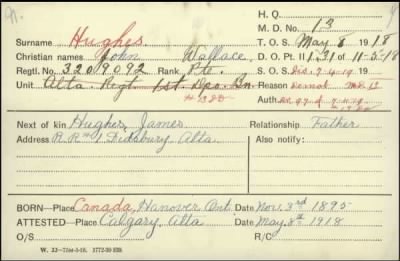 H. Q.
M. D. No. 13
Surname Hughes T. O. S. May 8 1918
Christian names John Wallace. D. O. Pt. II 131 of 11-5-18
Regtl. No. 3209092 Rank Pte. S. O. S. Dis. 7-4-19
Unit Alta. Regt. 1st. Dpo. Bn. Reason Demob M.D. 13
Auth. DO 97 of 7-4-19
Next of kin Hughes, James Relationship Father
Address R.R. 1 Didsbury Alta. Also notify:
BORN—Place Canada, Hanover Ont. Date Nov. 3rd 1895
ATTESTED—Place Calgary, Alta Date May 8th 1918
O/S R/C